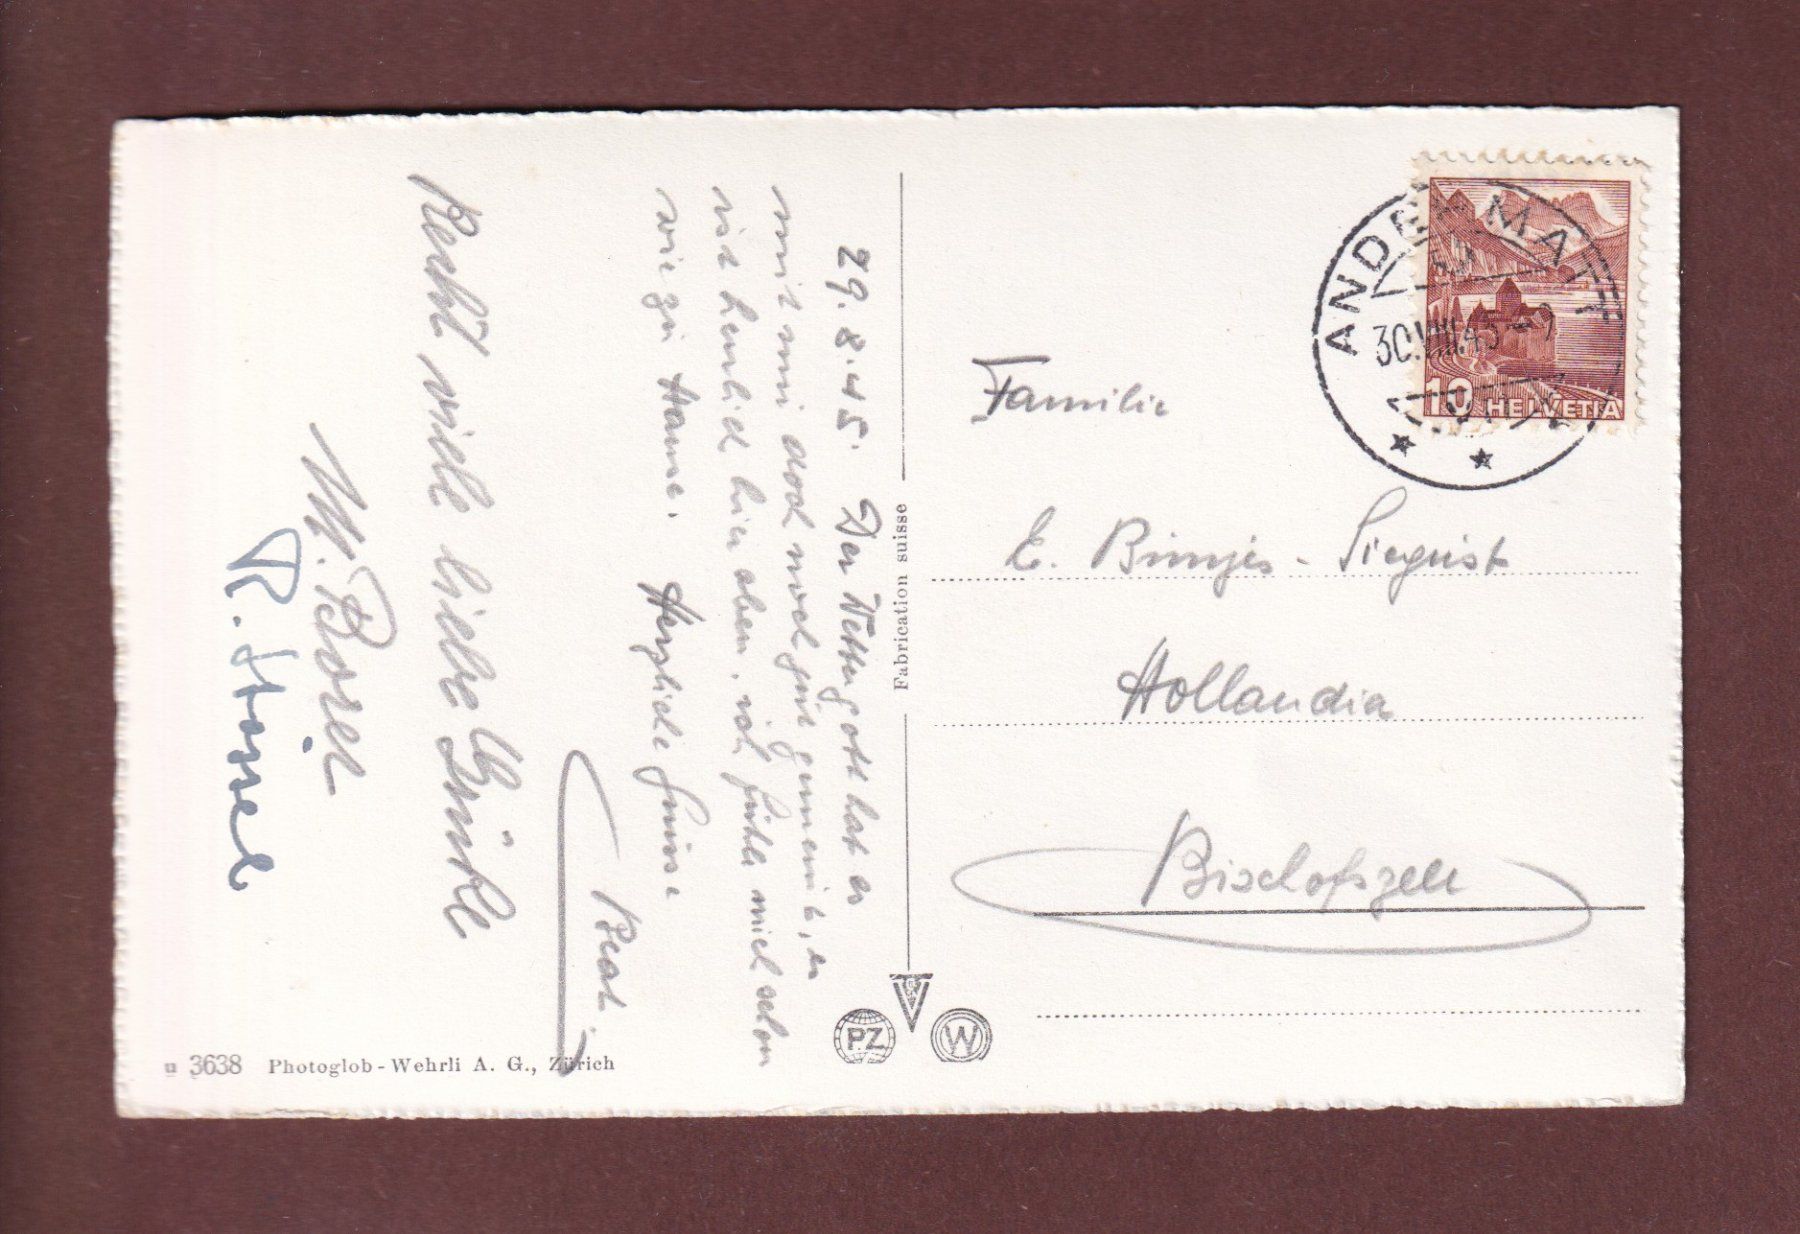 29.8.45. Der Wettergott hat es
mit mir doch noch gut gemeint, es
ist herrlich hier oben, ich fühle mich schon
wie zu Hause. Herzliche Grüsse
Beat.
Recht viele liebe Grüsse
M. Borer
R.
Fabrication suisse
ANDERMATT
30.VIII.45-9
10 HELVETIA
Familie
E. - Siegrist
Hollandia
Bischofszell
PZ
W
u 3638 Photoglob-Wehrli A. G., Zürich